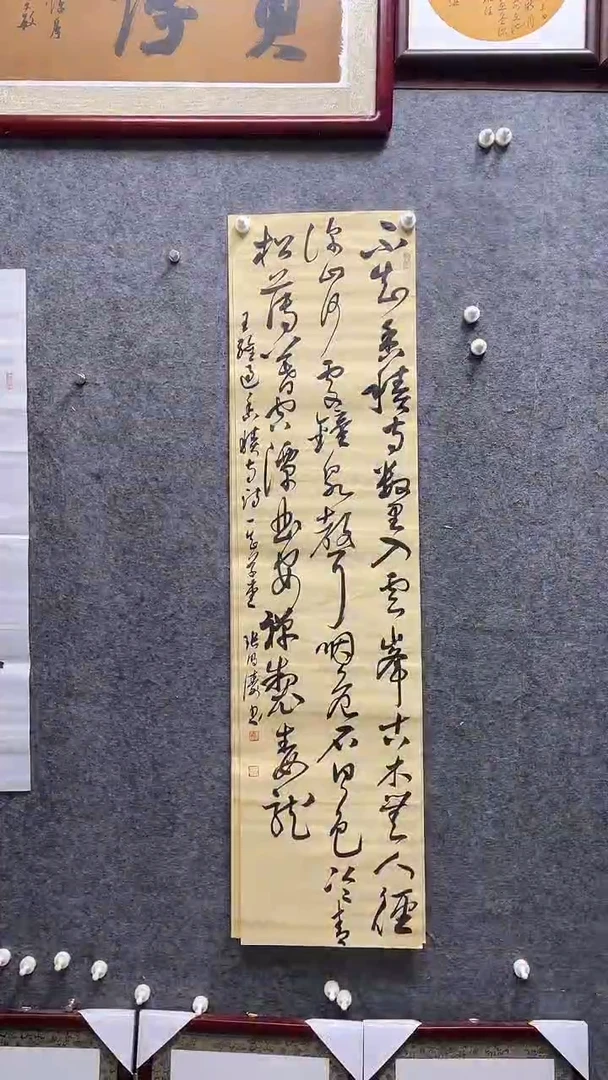 不知香積寺数里入雲峰古木無人徑
深山何處鐘泉聲咽危石日色冷青
松薄暮空潭曲安禪製毒龍
王維過香積寺詩一 書